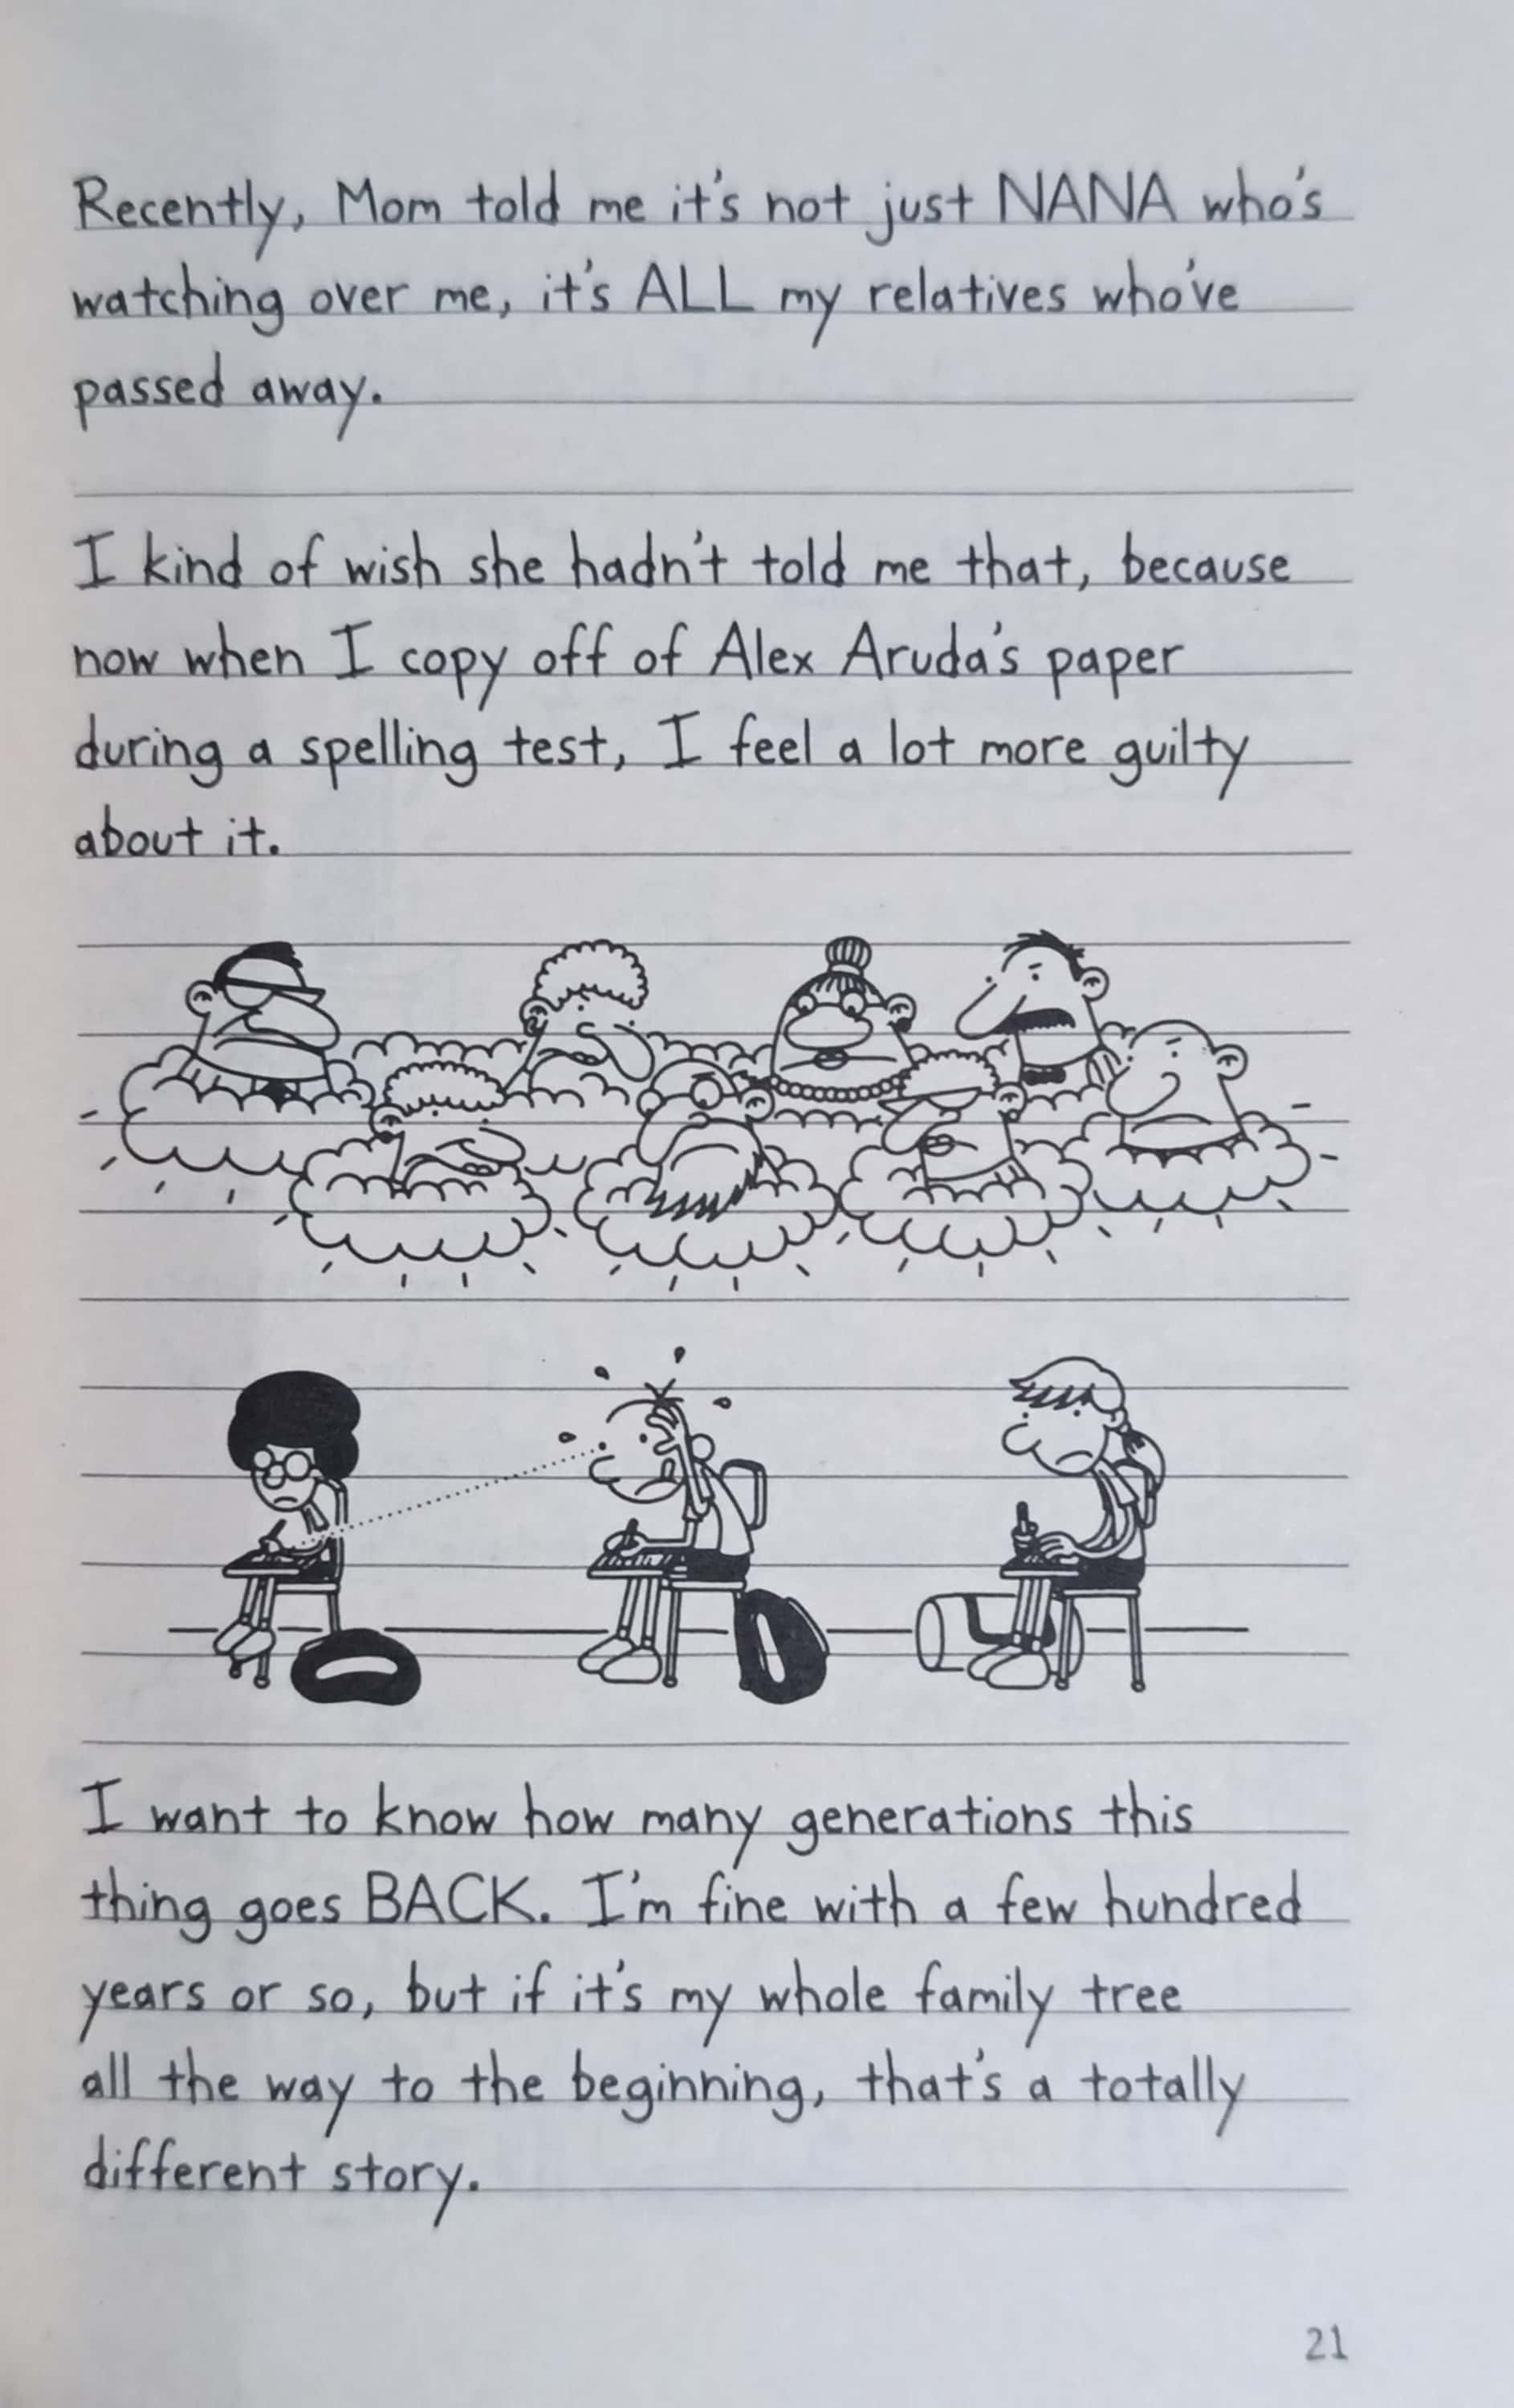 Recently, Mom told me it's not just NANA who's
watching over me, it's ALL my relatives who've
passed away.
I kind of wish she hadn't told me that, because
now when I copy off of Alex Aruda's paper
during a spelling test, I feel a lot more guilty
about it.
I want to know how many generations this
thing goes BACK. I'm fine with a few hundred
years or so, but if it's my whole family tree
all the way to the beginning, that's a totally
different story.
21